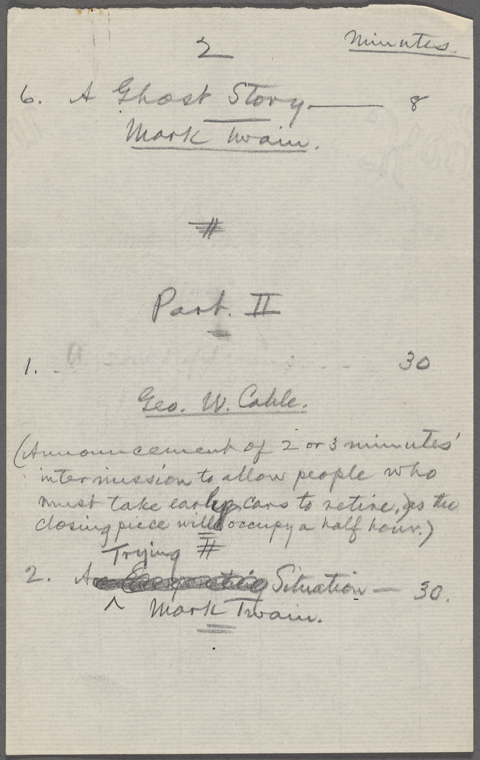 2
Minutes.
6. A Ghost Story. — 8
Mark Twain.
#
Part. II
1. 30
Geo. W. Cable.
(Announcement of 2 or 3 minutes'
intermission to allow people who
must take early cars to retire, as the
closing piece will occupy a half hour.)
#
Trying
2. A Situation — 30.
Mark Twain.